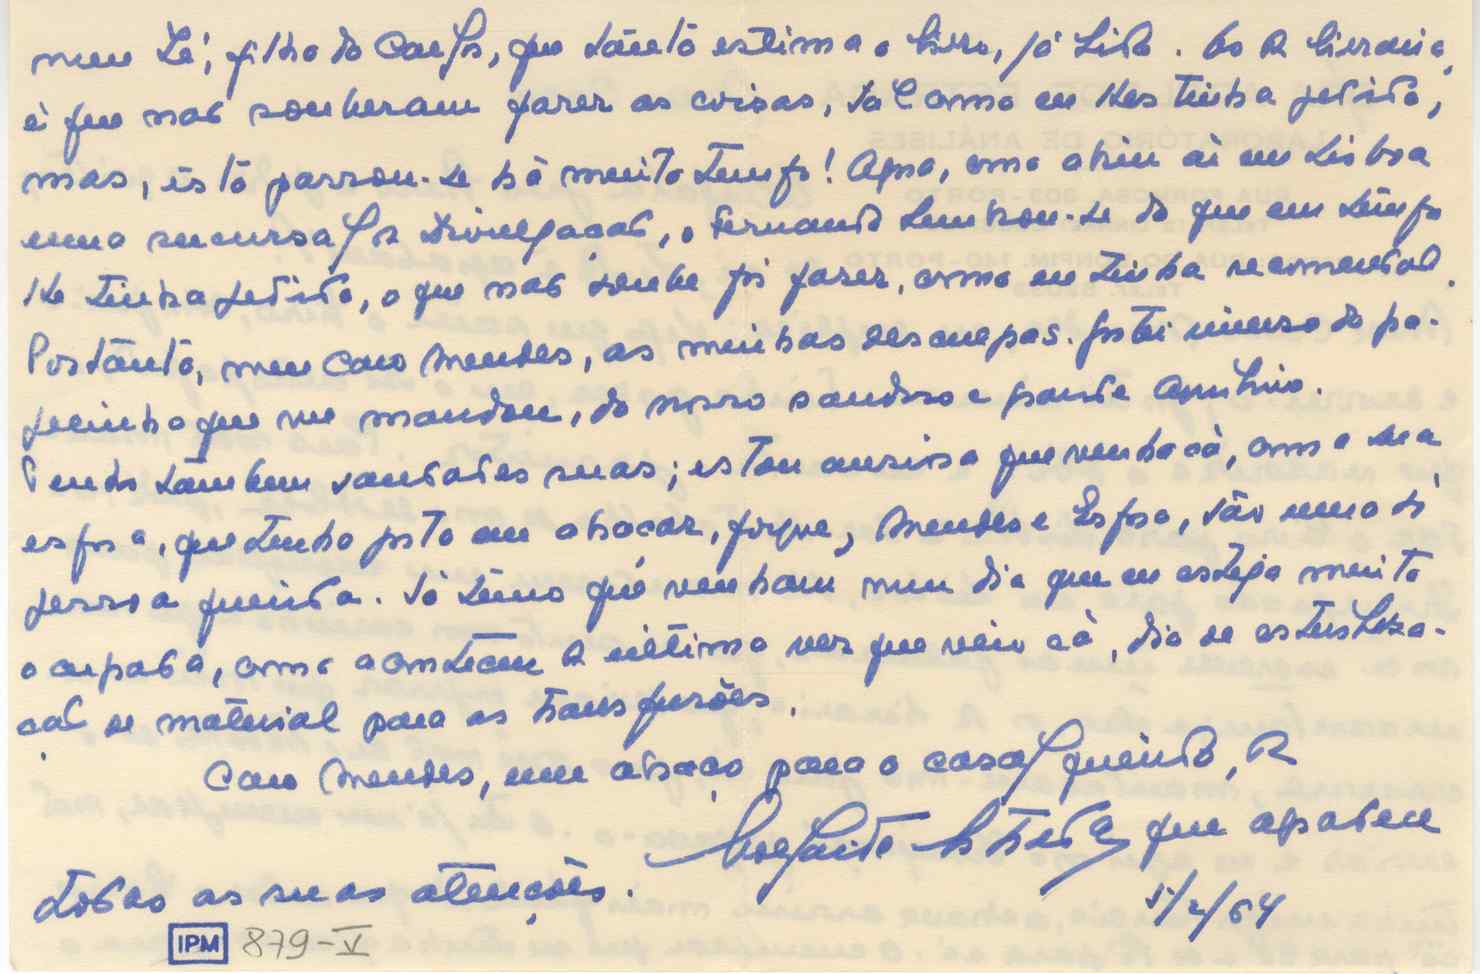 meu Zé, filho do Carlos, que tanto estima o livro, já lido. Eo da livraria,
é que não souberam fazer as coisas, tal como eu lhes tinha pedido,
mas, isto passou-se há muito tempo! Agora, como abriu aí em Lisboa
uma sucursal da Divulgação, o Fernando lembrou-se do que em tempo
lhe tinha pedido, o que não soube foi fazer, como eu tinha recomendado.
Portanto, meu caro Mendes, as minhas desculpas. Gostei imenso do pa-
pelinho que me mandou, do nosso saudoso e grande Aquilino.
Tenho também saudades suas; estou ansioso que venha cá, com a sua
esposa, que tenho gosto em abraçar, porque, Mendes e Esposa, são uma só
pessoa querida. Só temo que venham num dia que eu esteja muito
ocupada, como aconteceu da última vez que veio cá, dia de esteriliza-
ção de material para as transfusões.
Caro Mendes, um abraço para o casal querido, da
que agradece
todas as suas atenções.
5/2/64
IPM 879-V